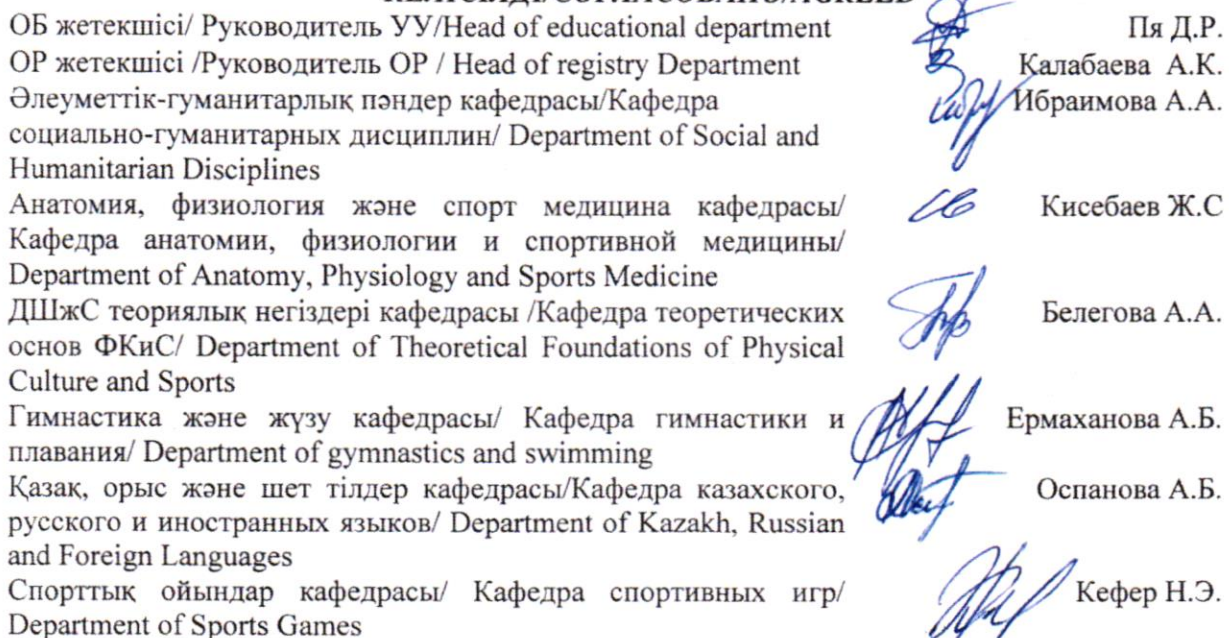 ОБ жетекшісі/ Руководитель УУ/Head of educational department Пя Д.Р.
ОР жетекшісі /Руководитель ОР / Head of registry Department Калабаева А.К.
Әлеуметтік-гуманитарлық пәндер кафедрасы/Кафедра Ибраимова А.А.
социально-гуманитарных дисциплин/ Department of Social and
Humanitarian Disciplines
Анатомия, физиология және спорт медицина кафедрасы/ Кисебаев Ж.С
Кафедра анатомии, физиологии и спортивной медицины/
Department of Anatomy, Physiology and Sports Medicine
ДШжС теориялық негіздері кафедрасы /Кафедра теоретических Белегова А.А.
основ ФКиС/ Department of Theoretical Foundations of Physical
Culture and Sports
Гимнастика және жүзу кафедрасы/ Кафедра гимнастики и Ермаханова А.Б.
плавания/ Department of gymnastics and swimming
Қазақ, орыс және шет тілдер кафедрасы/Кафедра казахского, Оспанова А.Б.
русского и иностранных языков/ Department of Kazakh, Russian
and Foreign Languages
Спорттық ойындар кафедрасы/ Кафедра спортивных игр/ Кефер Н.Э.
Department of Sports Games